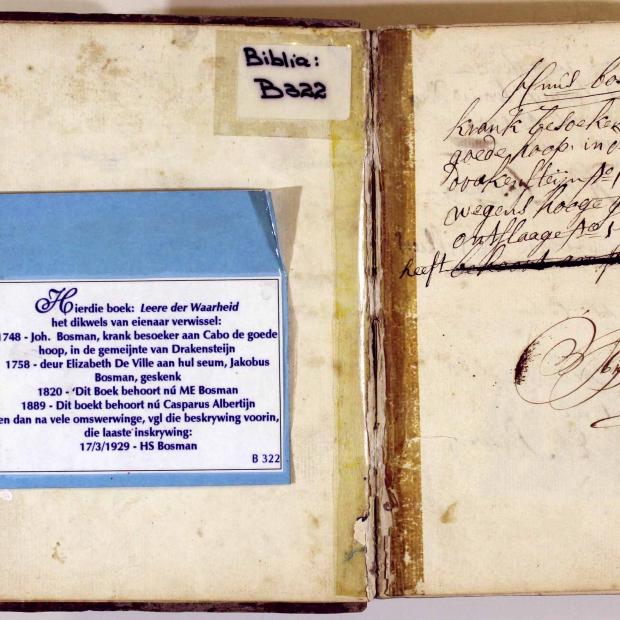 Biblia:
B322
Hierdie boek: Leere der Waarheid
het dikwels van eienaar verwissel:
1748 - Joh. Bosman, krank besoeker aan Cabo de goede
hoop, in de gemeijnte van Drakensteijn
1758 - deur Elizabeth De Ville aan hul seum, Jakobus
Bosman, geskenk
1820 - 'Dit Boek behoort nú ME Bosman
1889 - Dit boekt behoort nú Casparus Albertijn
en dan na vele omswerwinge, vgl die beskrywing voorin,
die laaste inskrywing:
17/3/1929 - HS Bosman
B 322
krank besoeker
goede hoop. in
wegens hooge
ontslaage
heeft